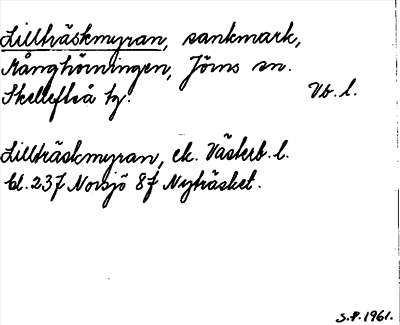 Lillträskmyran, sankmark,
Månghörningen, Jörns sn.
Skellefteå tg. Vb. l.
Lillträskmyran, ek. Västerb. l.
bl. 237 Norsjö 8f Nyträsket.
S.P. 1961.